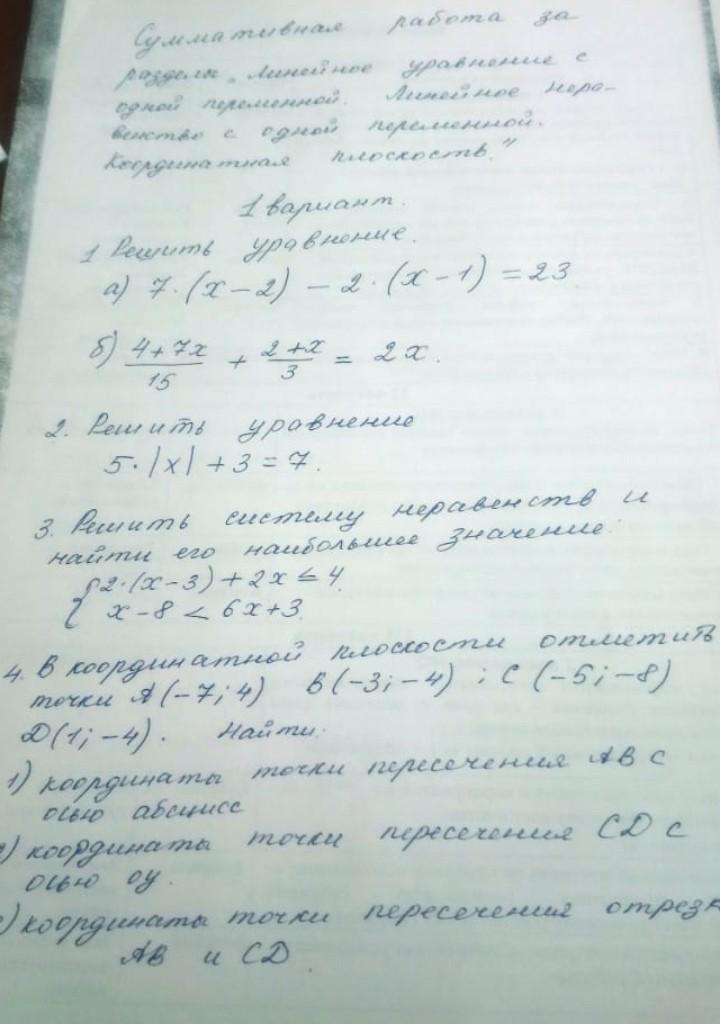 Суммативная работа за
разделы „Линейное уравнение с
одной переменной. Линейное нера-
венство с одной переменной.
Координатная плоскость."
1 вариант.
1 Решить уравнение.
а) 7·(x-2) - 2·(x-1) = 23.
б) (4+7x)/15 + (2+x)/3 = 2x.
2. Решить уравнение
5·|x| + 3 = 7.
3. Решить систему неравенств и
найти его наибольшее значение:
{2·(x-3) + 2x ≤ 4.
x-8 < 6x+3.
4. В координатной плоскости отметить
точки A(-7; 4) B(-3; -4) ; C (-5; -8)
D(1; -4). Найти:
1) координаты точки пересечения AB с
осью абсцисс
) координаты точки пересечения CD с
осью oy.
) координаты точки пересечения отрезк
AB и CD.